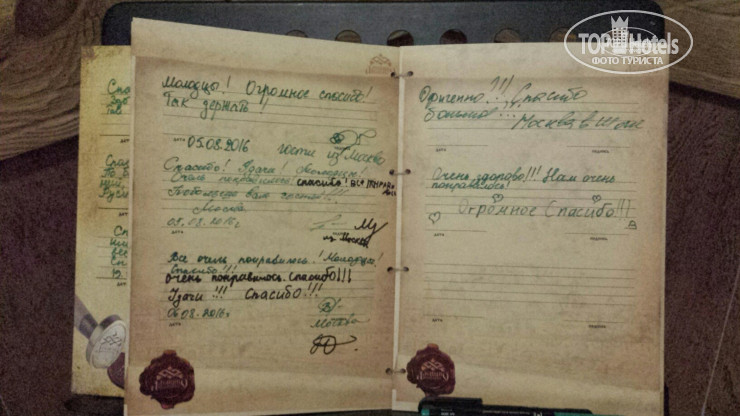 TOP Hotels
ФОТО ТУРИСТА
Молодцы! Огромное спасибо!
Так держать!
дата 05.08.2016
гости из Москвы
Спасибо! Удачи! Молодцы!
Очень понравилось! спасибо! Все понрави-
лось
Побольше вам гостей!!!
Москва
05.08.2016г.
дата
из Москвы
Все очень понравилось! Молодцы!
Спасибо!!!
очень понравилось. Спасибо!!!
Удачи!!! Спасибо!!!
06.08.2016г
Москва
дата
Офигенно!!! Спасибо
большое!!!
Москва
дата
подпись
Очень здорово!!! Нам очень
понравилось!
Огромное Спасибо!!!
дата
подпись
дата
подпись